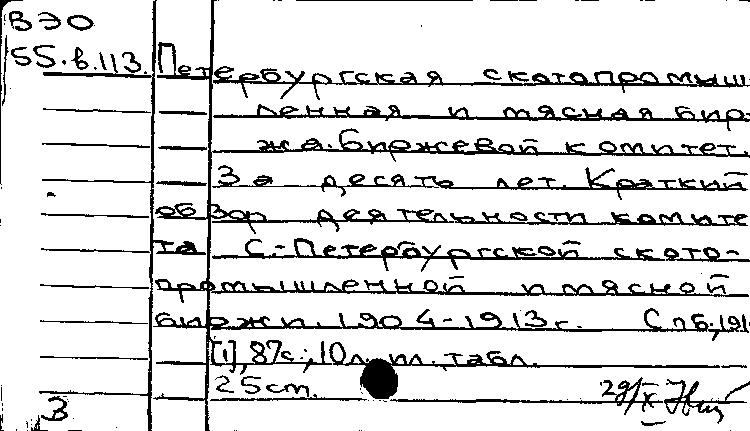 ВЭО
55.в.113. Петербургская скотопромыш-
ленная и мясная бир-
жа. Биржевой комитет.
За десять лет. Краткий
обзор деятельности комите-
та С.-Петербургской ското-
промышленной и мясной
биржи. 1904-1913г. Спб., 191
[1], 87с.; 10л. ил., табл.
25cm.
29/X
3